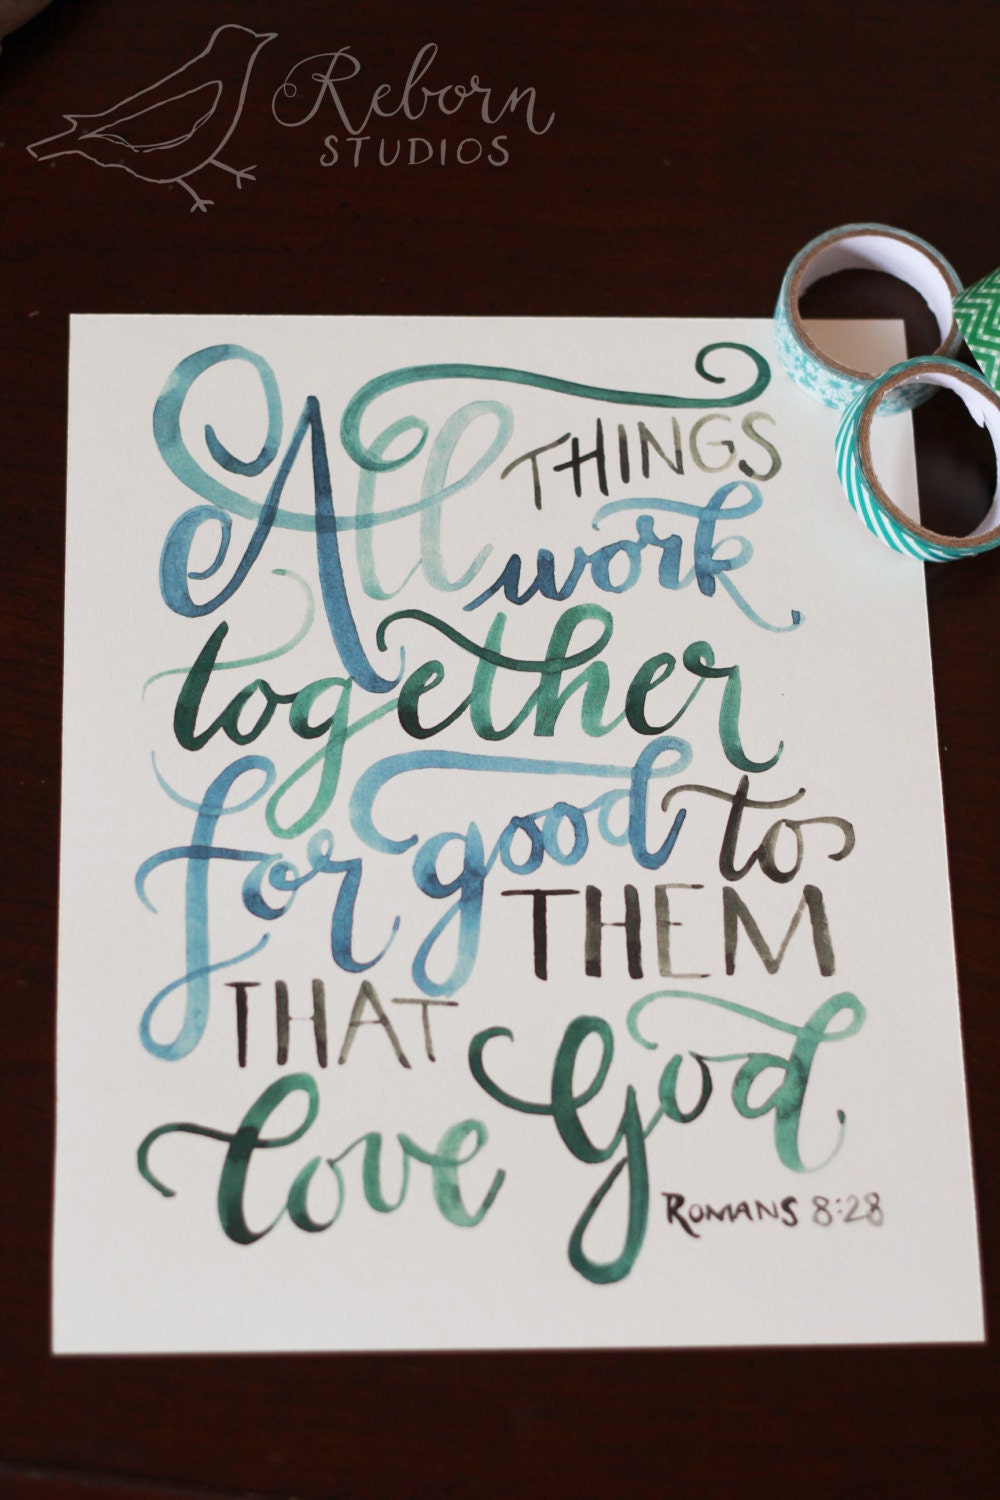 Reborn
STUDIOS
All THINGS
work
together
for good to
THEM
THAT
love God
ROMANS 8:28